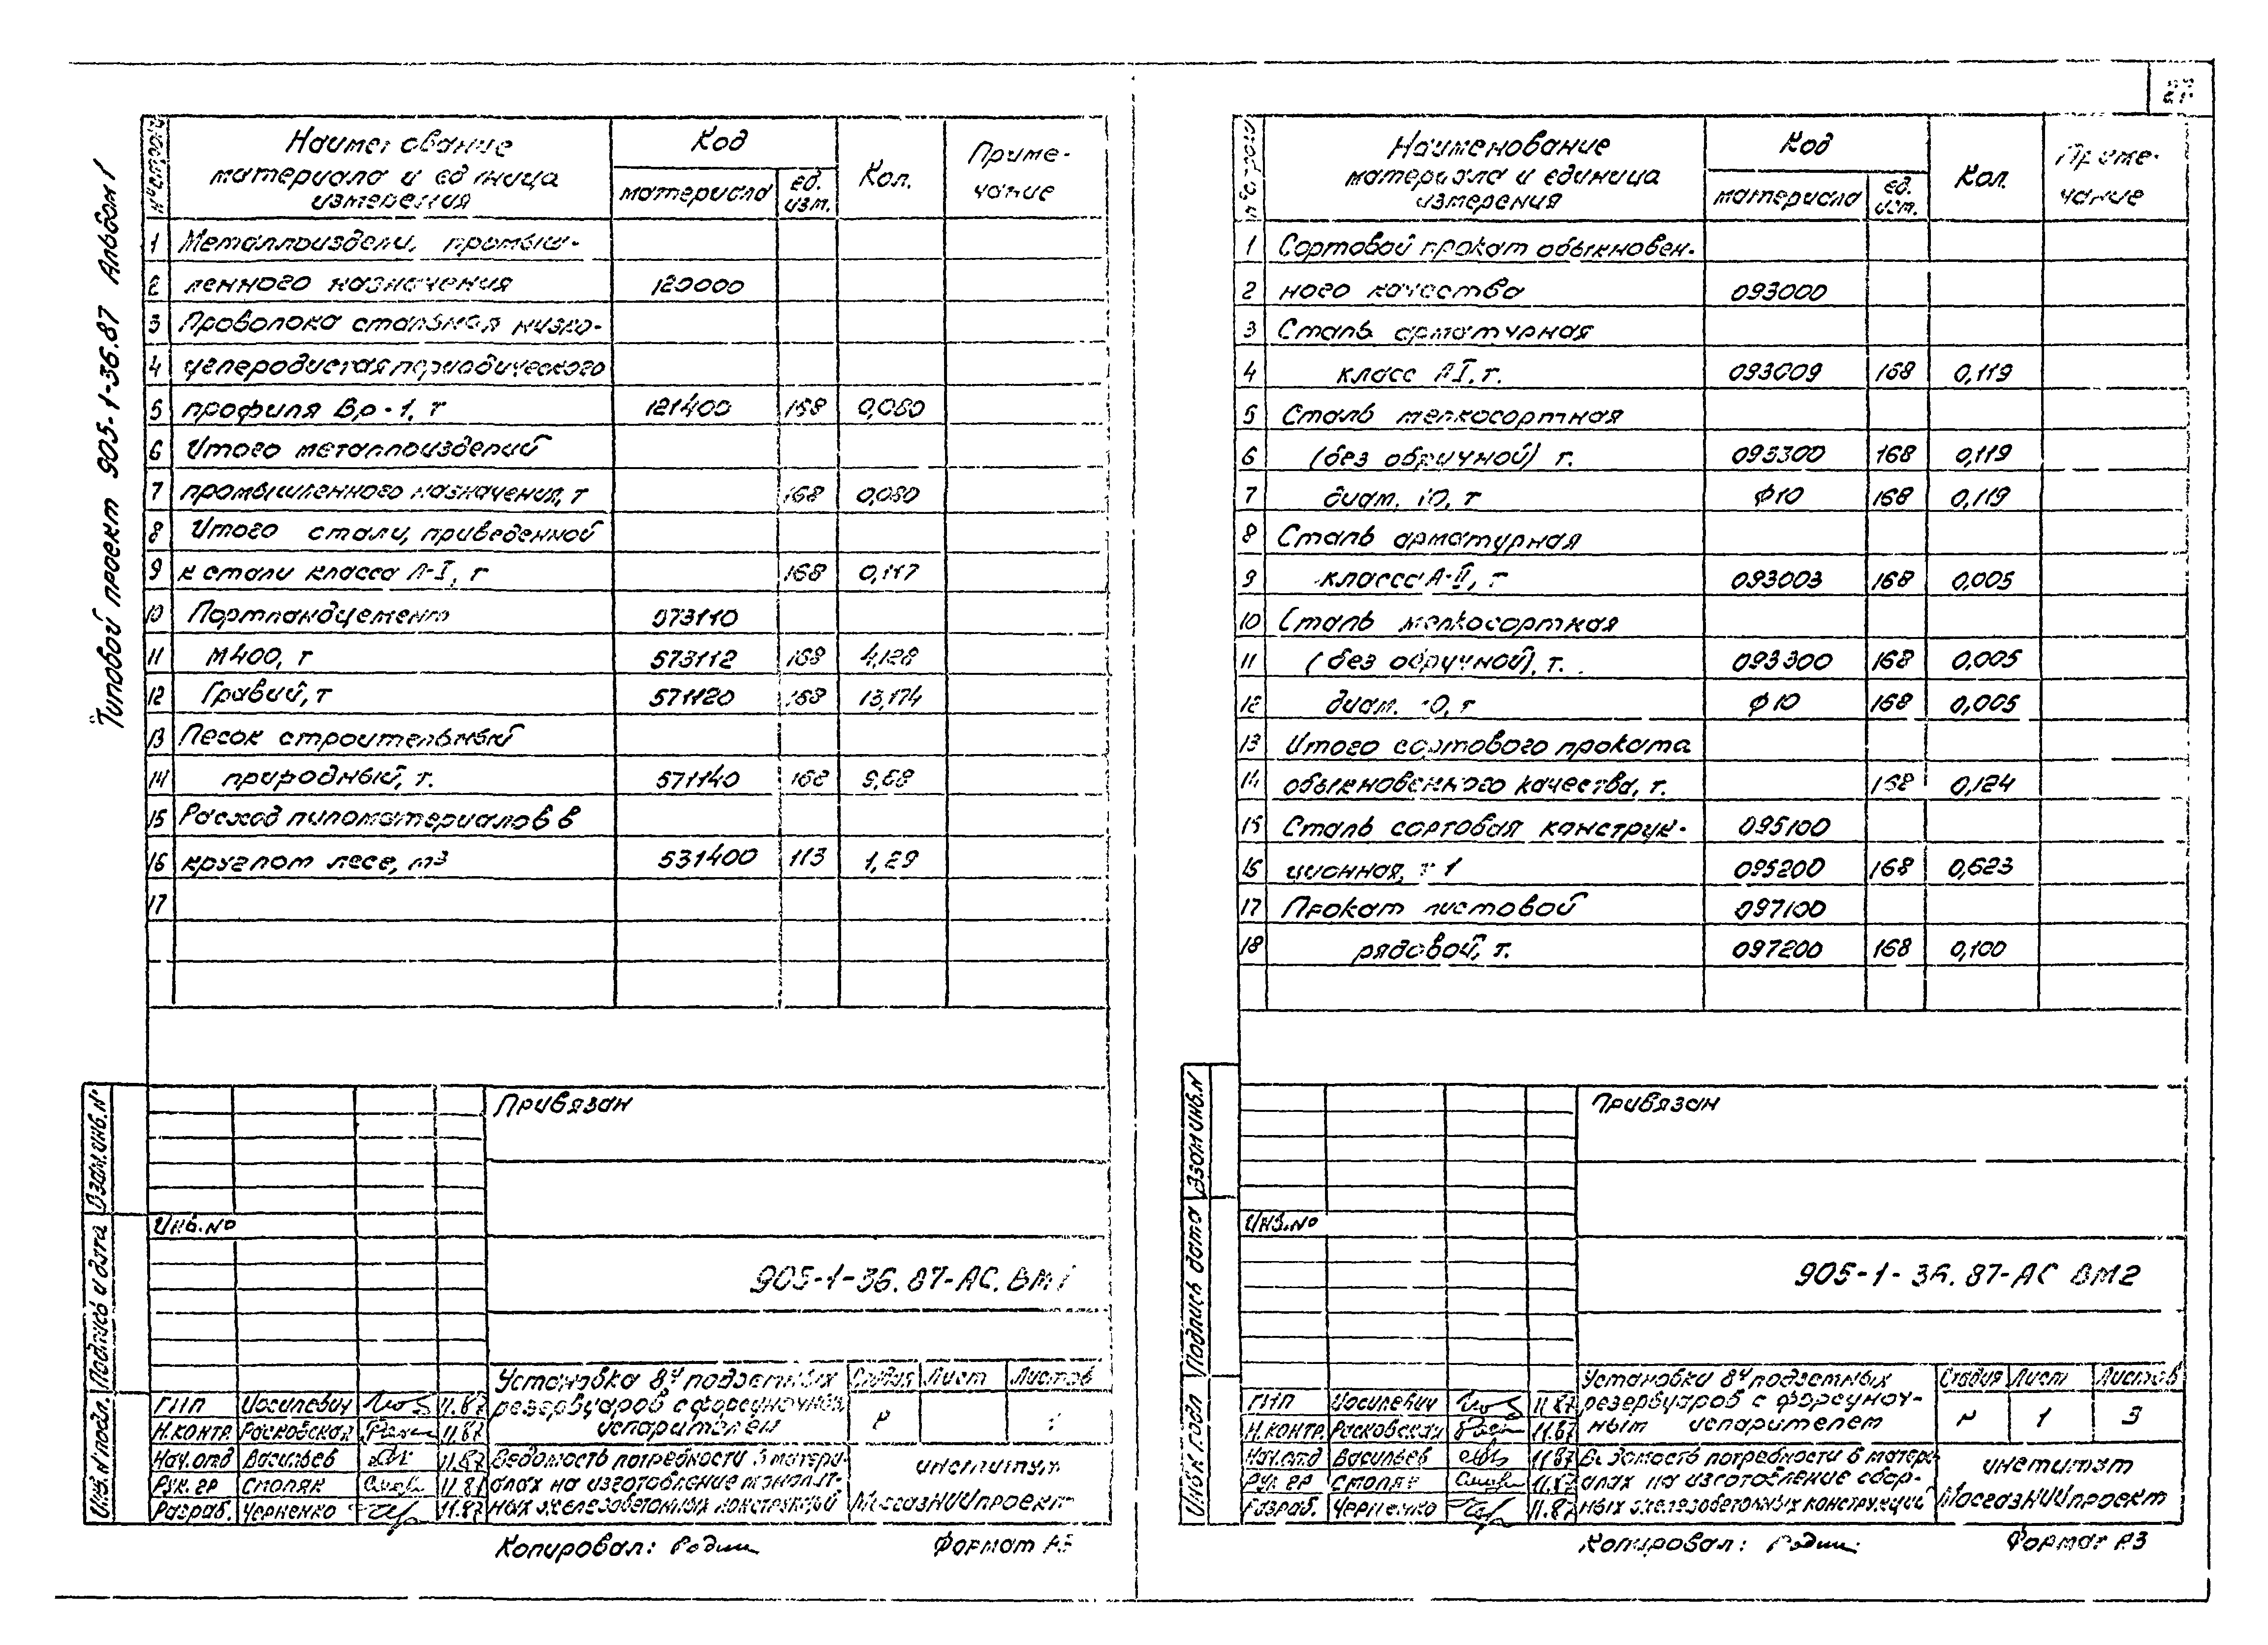 27
Типовой проект 905-1-36.87 Альбом 1
Наименование
материала и единица
измерения
Код
материала
ед.
изм.
Кол.
Приме-
чание
1 Металлоизделия промыш-
2 ленного назначения 120000
3 Проволока стальная низко-
4 углеродистая периодического
5 профиля Вр-1, т 121400 168 0,080
6 Итого металлоизделий
7 промышленного назначения, т 168 0,080
8 Итого стали, приведенной
9 к стали класса А-I, т 168 0,117
10 Портландцемент 573110
11 М400, т 573112 168 4,128
12 Гравий, т 571120 168 13,174
13 Песок строительный
14 природный, т. 571140 168 9,68
15 Расход пиломатериалов в
16 круглом лесе, м3 531400 113 1,29
17
Привязан
Инв.№
905-1-36.87-АС.ВМ1
Взам.инв.№
Подпись и дата
Инв.№ подл.
ГИП Иосилевич 11.87
Н.контр. Расковская 11.87
Нач.отд Васильев 11.87
Рук. гр Столяк 11.87
Разраб. Черненко 11.87
Установка 8У подземных
резервуаров с форсуночным
испарителем
Стадия Лист Листов
Р 1
Ведомость потребности в матери-
алах на изготовление монолит-
ных железобетонных конструкций
институт
МосгазНИИпроект
Копировал: Формат А3
№ строки
Наименование
материала и единица
измерения
Код
материала
ед.
изм.
Кол.
Приме-
чание
1 Сортовой прокат обыкновен-
2 ного качества 093000
3 Сталь арматурная
4 класс АI, т. 093009 168 0,119
5 Сталь мелкосортная
6 (без обручной) т. 093300 168 0,119
7 диам. 10, т ф10 168 0,119
8 Сталь арматурная
9 класса А-II, т 093003 168 0,005
10 Сталь мелкосортная
11 (без обручной), т. 093300 168 0,005
12 диам. 10, т ф10 168 0,005
13 Итого сортового проката
14 обыкновенного качества, т. 168 0,124
15 Сталь сортовая конструк- 095100
16 ционная, т 1 095200 168 0,623
17 Прокат листовой 097100
18 рядовой, т. 097200 168 0,100
Привязан
Инв.№
905-1-36.87-АС ВМ2
Взам инв.№
Подпись дата
Инв№ подл
ГИП Иосилевич 11.87
Н.контр. Расковская 11.87
Нач.отд Васильев 11.87
Рук. гр Столяк 11.87
Разраб. Черненко 11.87
Установки 8У подземных
резервуаров с форсуноч-
ным испарителем
Стадия Лист Листов
Р 1 3
Ведомость потребности в матери-
алах на изготовление сбор-
ных железобетонных конструкций
институт
МосгазНИИпроект
Копировал: Формат А3